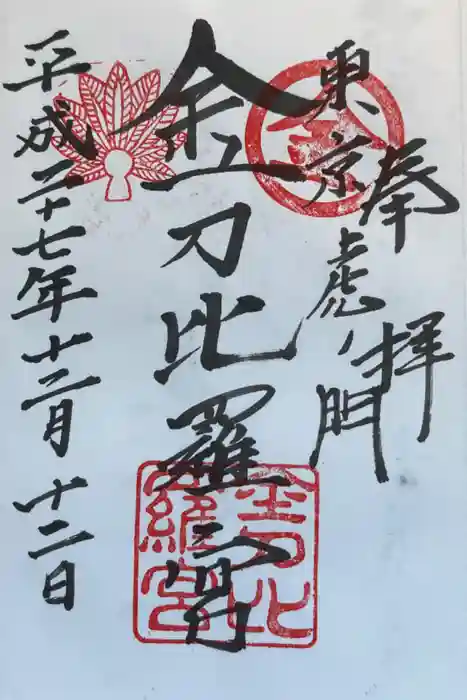 奉拝
東京虎ノ門
金刀比羅宮
平成二十七年十二月十二日
金
金刀比
羅宮